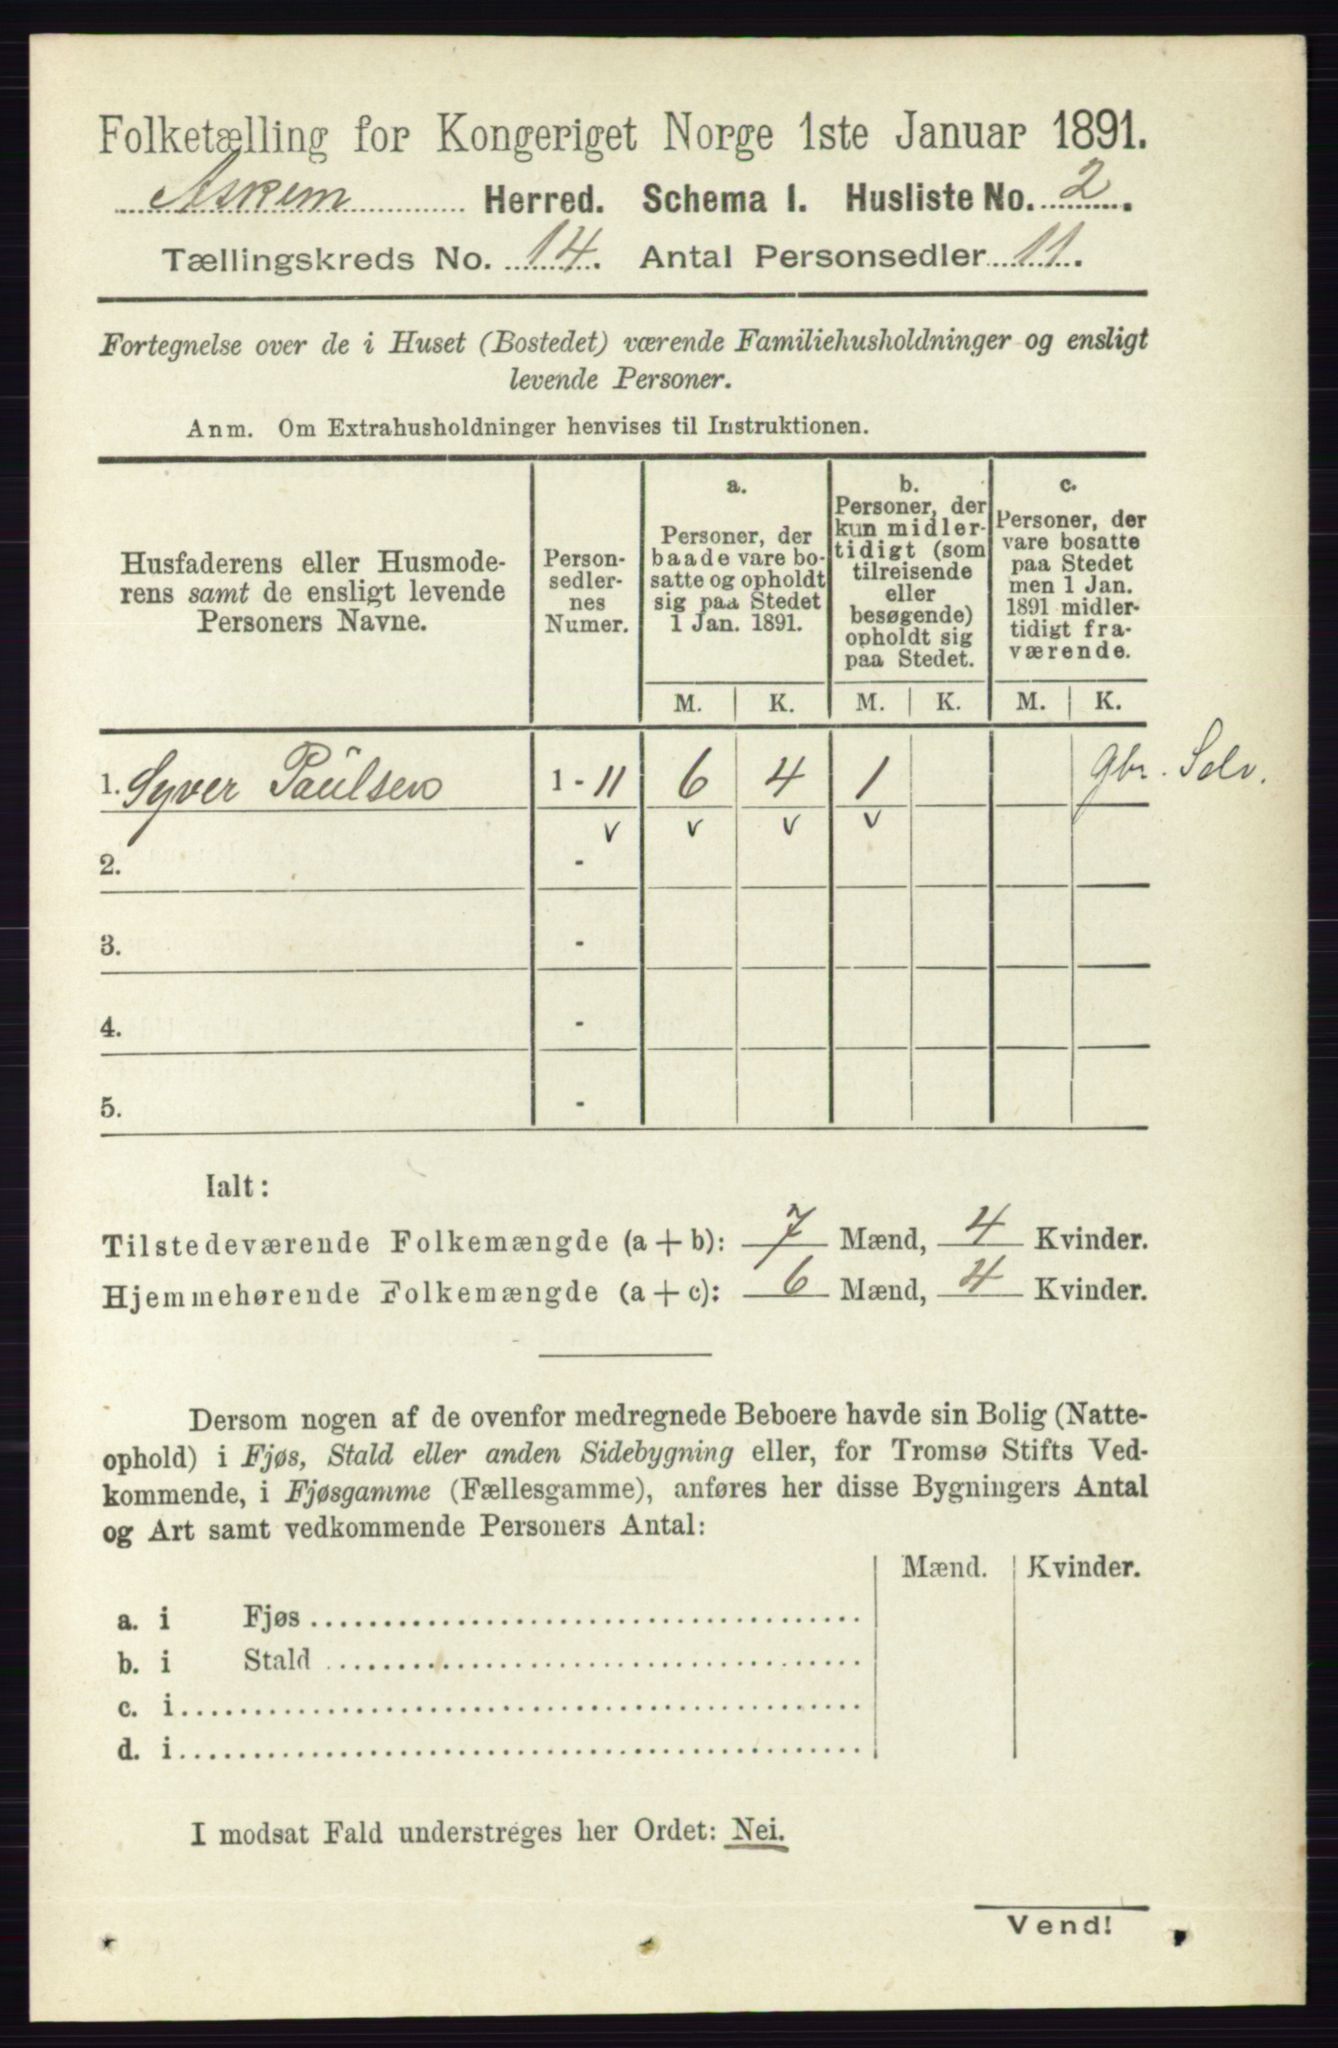 Folketælling for Kongeriget Norge 1ste Januar 1891.
Askim Herred. Schema 1. Husliste No. 2.
Tællingskreds No. 14. Antal Personsedler 11.
Fortegnelse over de i Huset (Bostedet) værende Familiehusholdninger og ensligt
levende Personer.
Anm. Om Extrahusholdninger henvises til Instruktionen.
Husfaderens eller Husmode-
rens samt de ensligt levende
Personers Navne.
Person-
sedler-
nes
Numer.
a.
Personer, der
baade vare bo-
satte og opholdt
sig paa Stedet
1 Jan. 1891.
b.
Personer, der
kun midler-
tidigt (som
tilreisende
eller
besøgende)
opholdt sig
paa Stedet.
c.
Personer, der
vare bosatte
paa Stedet
men 1 Jan.
1891 midler-
tidigt fra-
værende.
M. K. M. K. M. K.
1. Syver Paulsen 1 - 11 6 4 1 Gbr. Selv.
v v v v
2. -
3. -
4. -
5. -
Ialt:
Tilstedeværende Folkemængde (a + b): 7 Mænd, 4 Kvinder.
Hjemmehørende Folkemængde (a + c): 6 Mænd, 4 Kvinder.
Dersom nogen af de ovenfor medregnede Beboere havde sin Bolig (Natte-
ophold) i Fjøs, Stald eller anden Sidebygning eller, for Tromsø Stifts Ved-
kommende, i Fjøsgamme (Fællesgamme), anføres her disse Bygningers Antal
og Art samt vedkommende Personers Antal:
Mænd. Kvinder.
a. i Fjøs
b. i Stald
c. i
d. i
I modsat Fald understreges her Ordet: Nei.
Vend!